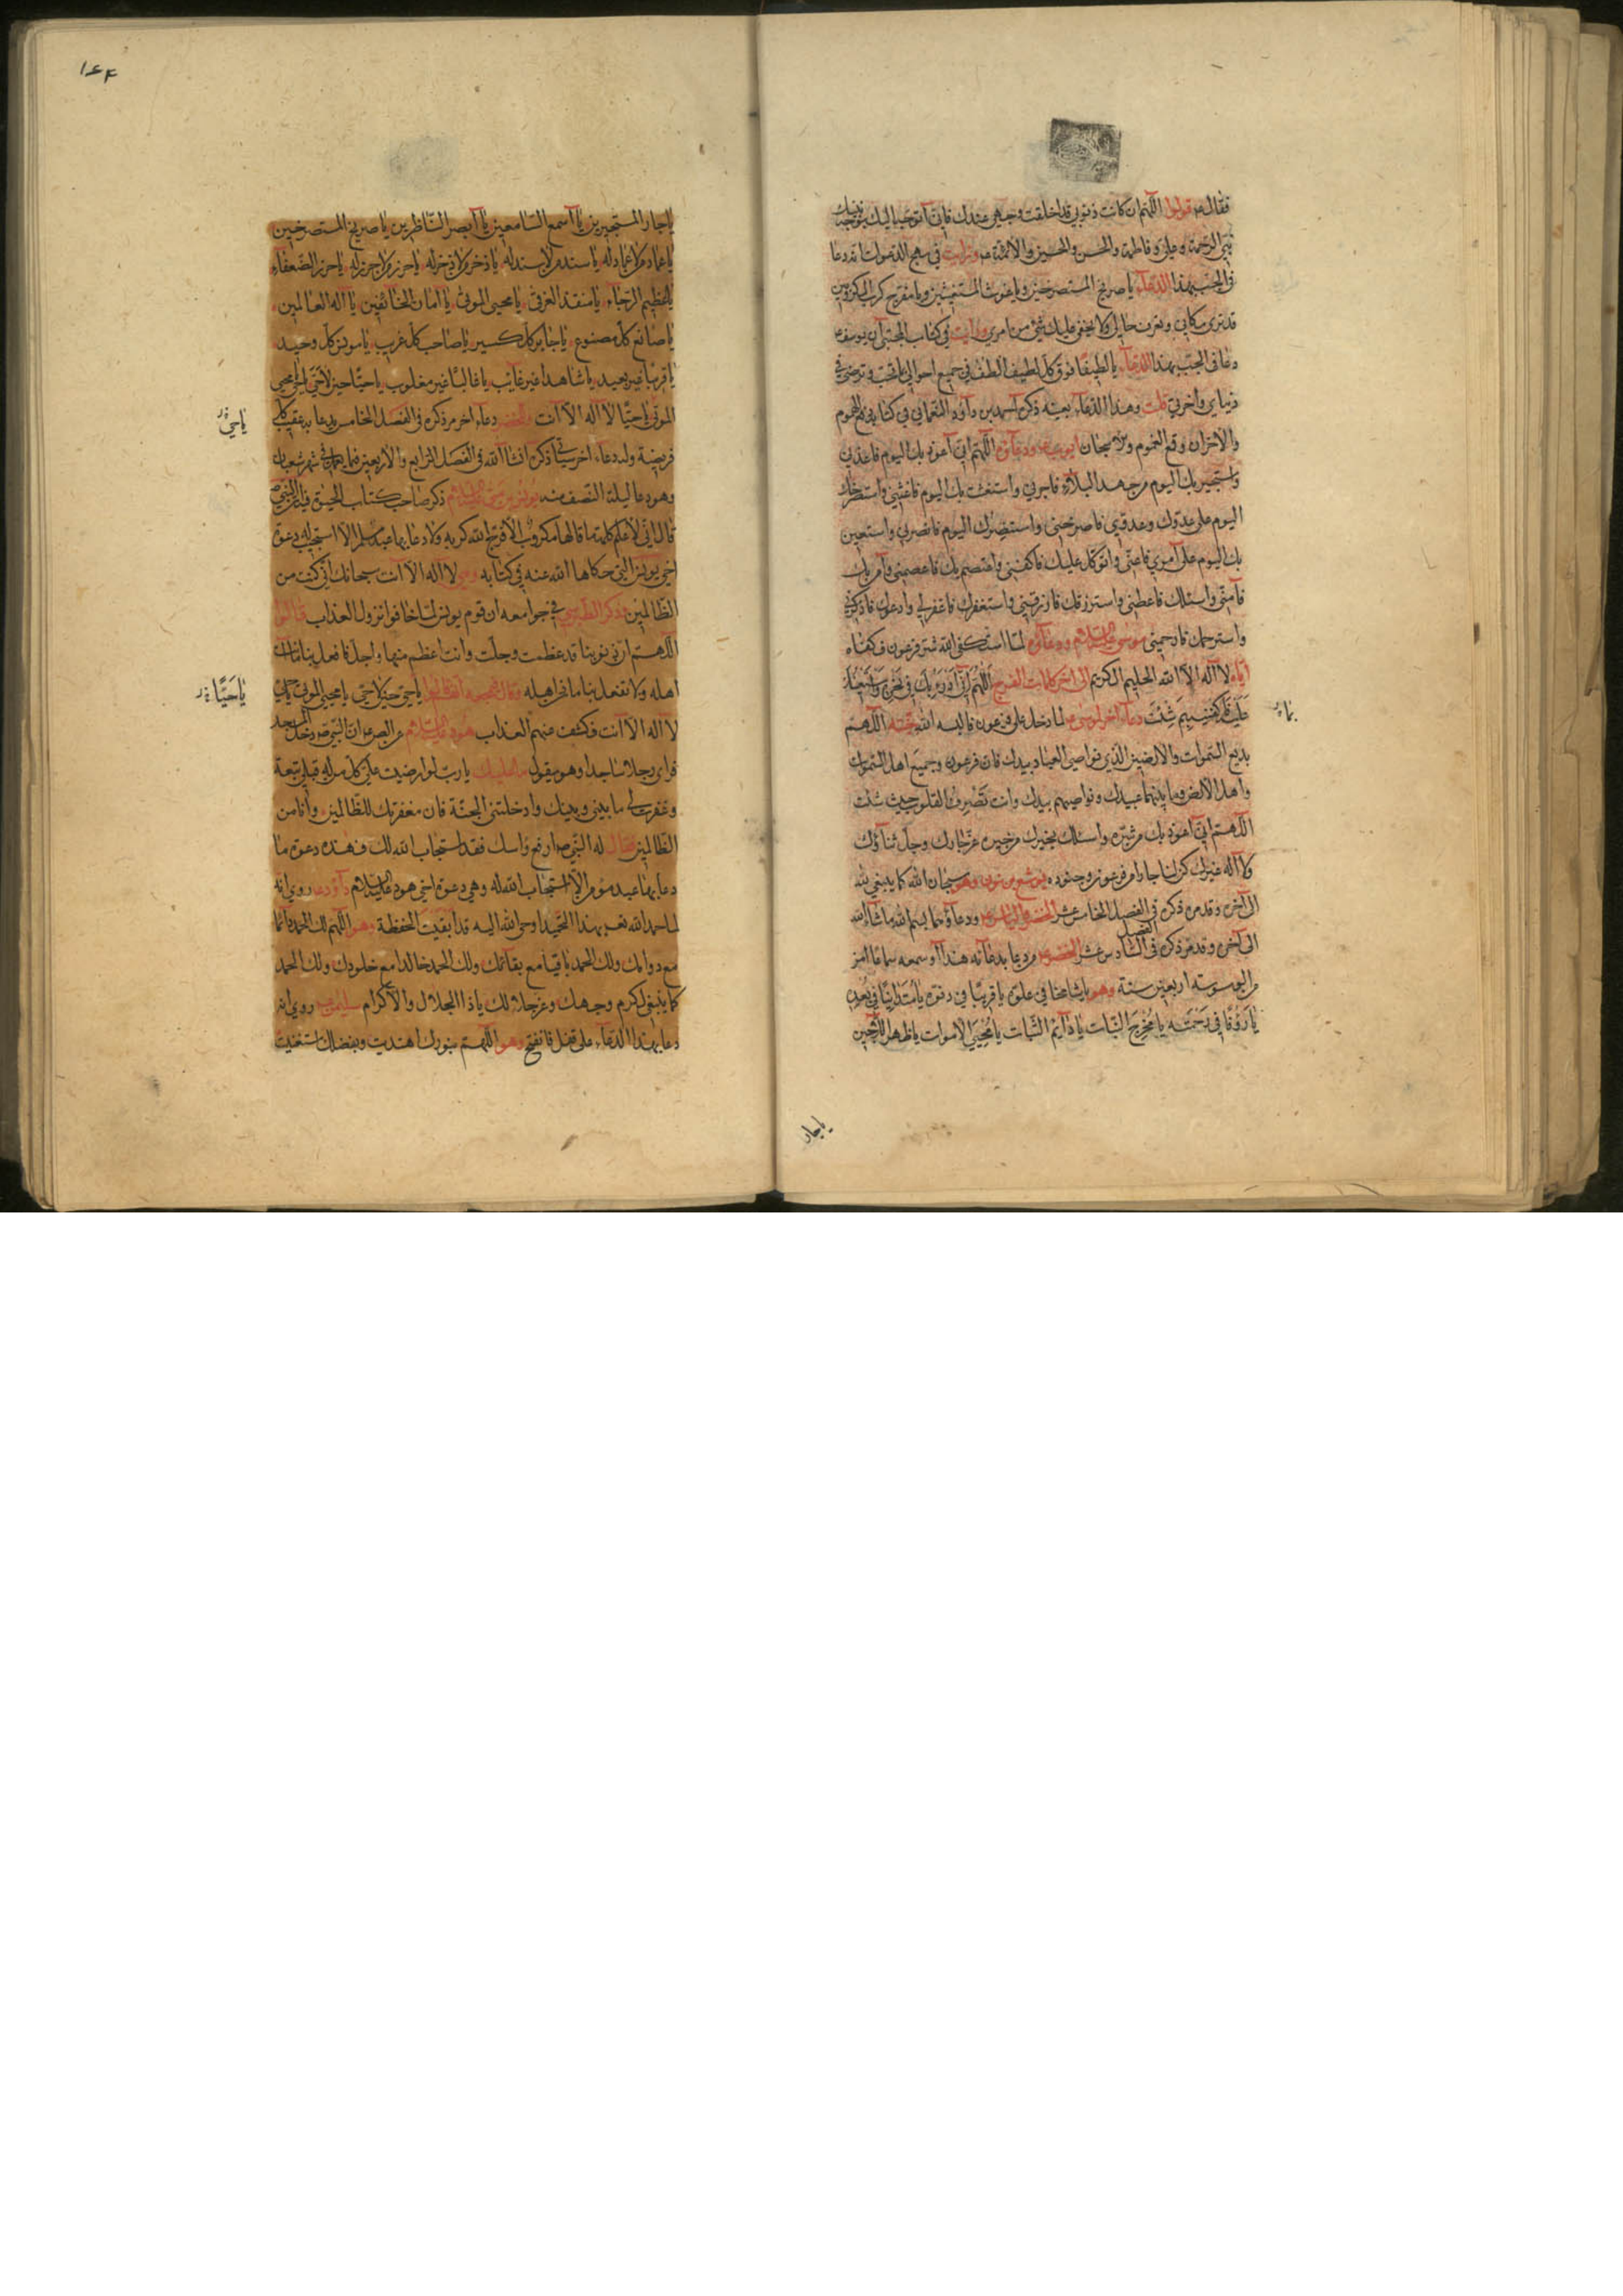 فقال ع قولوا اللهم ان كانت ذنوبي قد اخلقت وجهي عندك فاني اتوجه اليك بوجه نبيك
نبي الرحمة وعلي وفاطمة والحسن والحسين والائمة ع ورايت في مهج الدعوات انه دعا
في الجب بهذا الدعآء يا صريخ المستصرخين ويا غوث المستغيثين ويا مفرج كرب المكروبين
قد ترى مكاني وتعرف حالي ولا يخفى عليك شئ من امري ورايت في كتاب المجتبى ان يوسف ع
دعا في الجب بهذا الدعآء يا لطيفًا فوق كل لطيف الطف في جميع احوالي كما تحب وترضى في
دنياي واخرتي قلت وهذا الدعآء بعينه ذكره احمد بن داود النعماني في كتاب دفع الهموم
والاحزان وقمع الغموم والاشجان ايوب ع ودعآؤه اللهم اني اعوذ بك اليوم فاعذني
واستجير بك اليوم من جهد البلآء فاجرني واستغيث بك اليوم فاغثني واستصرخك
اليوم على عدوك وعدوي فاصرخني واستنصرك اليوم فانصرني واستعين
بك اليوم على امري فاعني واتوكل عليك فاكفني واعتصم بك فاعصمني وآمن بك
فآمني واسئلك فاعطني واسترزقك فارزقني واستغفرك فاغفر لي وادعوك فاذكرني
واسترحمك فارحمني موسى عليه السلام ودعآؤه لما استكفى الله شر فرعون فكفاه
اياه لا اله الا الله الحليم الكريم الى اخر كلمات الفرج اللهم اني ادرء بك في نحره واستعينك
عليه فاكفنيه بم شئت دعآء اخر لموسى ع لما دخل على فرعون فالبسه الله جنته اللهم
بديع السموات والارضين الذي نواصي العباد بيدك فان فرعون وجميع اهل السموات
واهل الارض وما بينهما عبيدك ونواصيهم بيدك وانت تصرف القلوب حيث شئت
اللهم اني اعوذ بك من شره واسئلك بخيرك من خيره عز جارك وجل ثناؤك
ولا اله غيرك كن لنا جارا من فرعون وجنوده يوشع بن نون وهو سبحان الله كما ينبغي لله
الى آخره وقد مر ذكره في الفصل الخامس عشر الخضر والياس ع ودعآؤهما بسم الله ما شآء الله
الى آخره وقد مر ذكره في الفصل السادس عشر الخضر ع من دعا بدعآئه هذا او سمعه سماعا امن
من الوسوسة اربعين سنة وهو يا شامخا في علوه يا قريبًا في دنوه يا متدانيًا في بُعده
يا رؤفًا في رحمته يا مُخرج النبات يا دآئم الثبات يا مُحيي الاموات يا ظهر اللاجين
بمَ
يا جار
١٤٣
يا جار المستجيرين يا اسمع السامعين يا ابصر الناظرين يا صريخ المستصرخين
يا عماد من لا عماد له يا سند من لا سند له يا ذخر من لا ذخر له يا حرز من لا حرز له يا حرز الضعفآء
يا عظيم الرجآء يا منقذ الغرقى يا محيي الموتى يا امان الخائفين يا اله العالمين
يا صانع كل مصنوع يا جابر كل كسير يا صاحب كل غريب يا مونس كل وحيد
يا قريبا غير بعيد يا شاهدا غير غايب يا غالبًا غير مغلوب يا حيًا حين لا حي يا محيي
الموتى يا حيًا لا اله الا انت وللخضر دعاء اخر مر ذكره في الفصل الخامس يدعا به عقيب كل
فريضة وله دعاء اخر سيأتي ذكره انشاء الله في الفصل الرابع والاربعين فيما يعمل في شهر شعبان
وهو دعا ليلة النصف منه يونس بن متى عليه السلام ذكر صاحب كتاب الحيوة فيه ان النبي ص
قال اني لاعلم كلمة ما قالها مكروب الا فرج الله كربه ولا دعا بها عبد مسلم الا استجيب له دعوة
اخي يونس التي حكاها الله عنه في كتابه وهي لا اله الا انت سبحانك اني كنت من
الظالمين وذكر الطبرسي في جوامعه ان قوم يونس لما خافوا نزول العذاب قالوا
اللهم ان ذنوبنا قد عظمت وجلت وانت اعظم منها واجل فافعل بنا ما انت
اهله ولا تفعل بنا ما نحن اهله وقال بعضهم انهم قالوا يا حي حين لا حي يا محيي الموتى يا حي
لا اله الا انت فكشف عنهم العذاب هود عليه السلام عن البصري ان النبي ص دخل المسجد
فراى رجلا ساجدا وهو يقول ما عليك يا رب لو ارضيت عني كل من له قبلي تبعة
وغفرت لي ما بيني وبينك وادخلتني الجنة فان مغفرتك للظالمين وانا من
الظالمين فقال له النبي ص ارفع راسك فقد استجاب الله لك فهذه دعوة ما
دعا بها عبد مؤمن الا استجاب الله له وهي دعوة اخي هود عليه السلام داود ع روي انه
لما حمد الله تعالى بهذا التحميد اوحى الله اليه قد اتعبت الحفظة وهو اللهم لك الحمد دآئما
مع دوامك ولك الحمد باقيا مع بقآئك ولك الحمد خالدا مع خلودك ولك الحمد
كما ينبغي لكرم وجهك وعز جلالك يا ذا الجلال والاكرام سليمان ع روي انه
دعا بهذا الدعآء على قفل فانفتح وهو اللهم بنورك اهتديت وبفضلك استغنيت
يا حي
يا حَيًّا